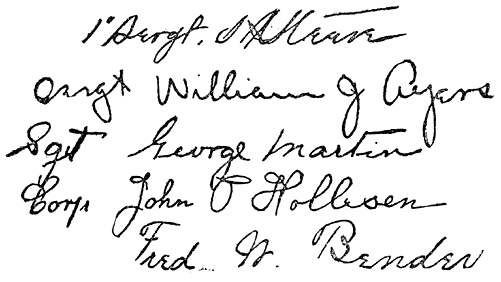 1' Sergt.
Sergt William J Ayers
Sgt George Martin
Corp John P Hollesen
Fred W. Bender